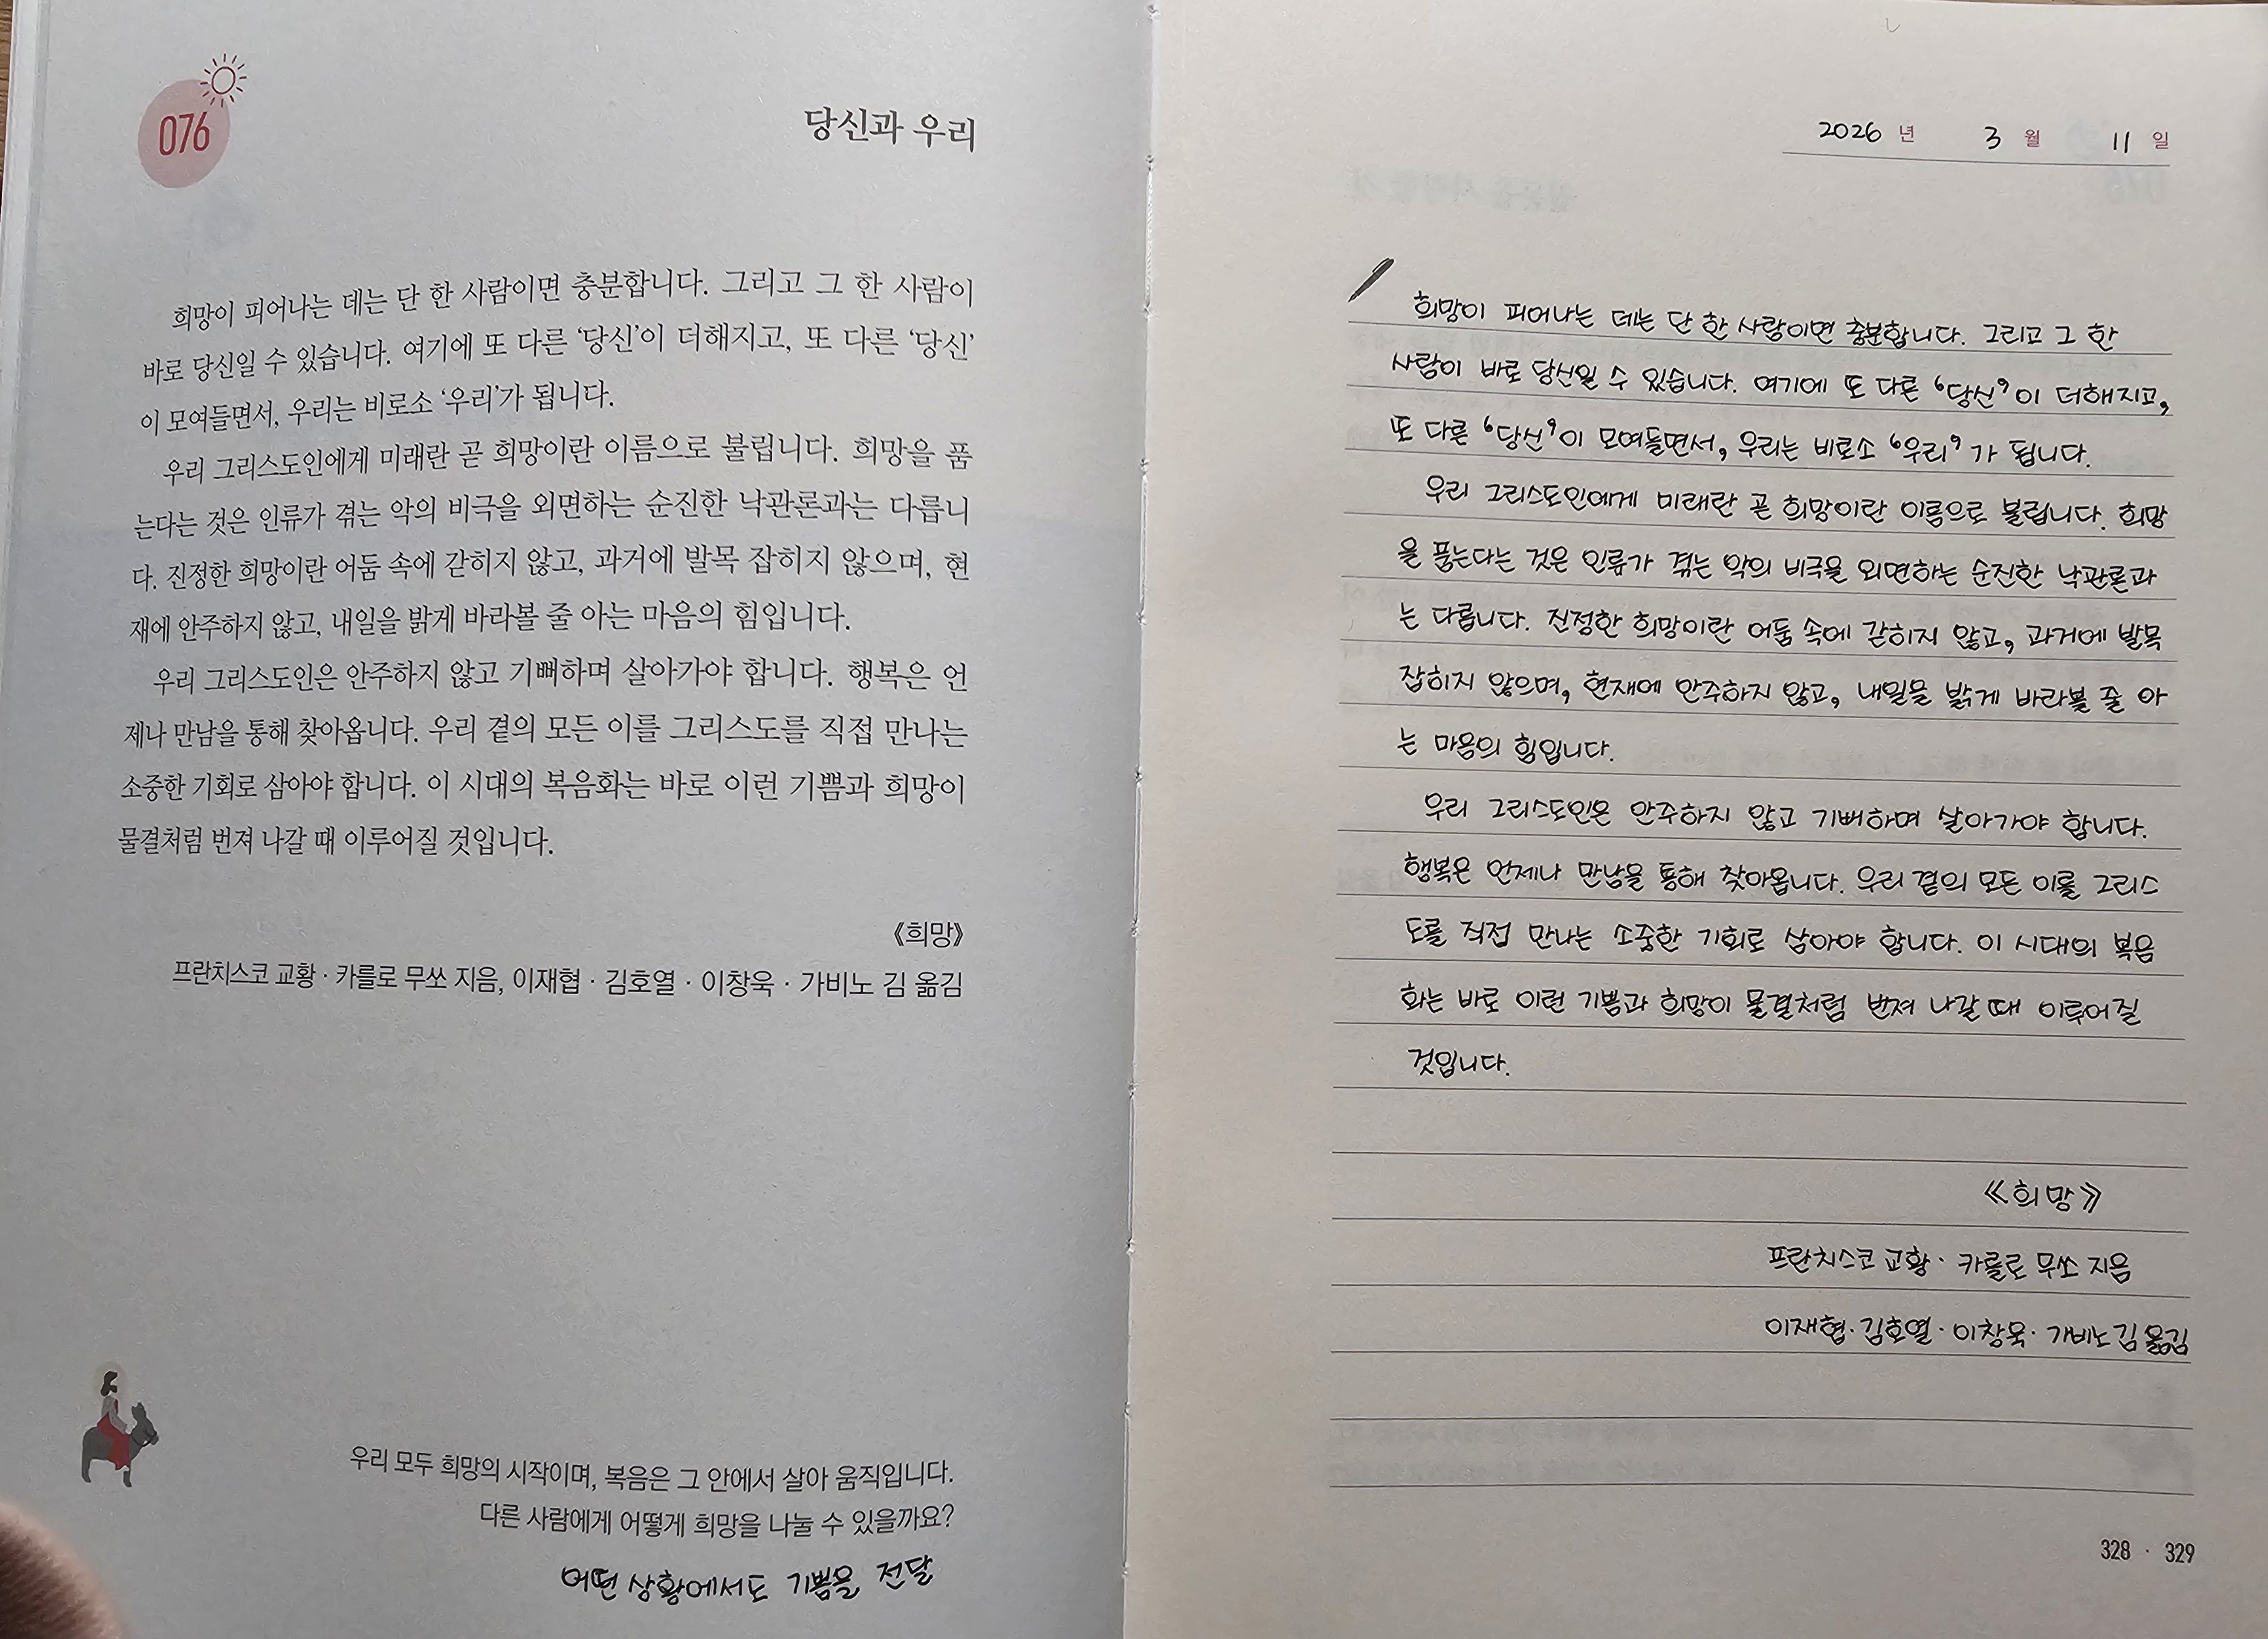 076
당신과 우리
희망이 피어나는 데는 단 한 사람이면 충분합니다. 그리고 그 한 사람이
바로 당신일 수 있습니다. 여기에 또 다른 ‘당신’이 더해지고, 또 다른 ‘당신’
이 모여들면서, 우리는 비로소 ‘우리’가 됩니다.
우리 그리스도인에게 미래란 곧 희망이란 이름으로 불립니다. 희망을 품
는다는 것은 인류가 겪는 악의 비극을 외면하는 순진한 낙관론과는 다릅니
다. 진정한 희망이란 어둠 속에 갇히지 않고, 과거에 발목 잡히지 않으며, 현
재에 안주하지 않고, 내일을 밝게 바라볼 줄 아는 마음의 힘입니다.
우리 그리스도인은 안주하지 않고 기뻐하며 살아가야 합니다. 행복은 언
제나 만남을 통해 찾아옵니다. 우리 곁의 모든 이를 그리스도를 직접 만나는
소중한 기회로 삼아야 합니다. 이 시대의 복음화는 바로 이런 기쁨과 희망이
물결처럼 번져 나갈 때 이루어질 것입니다.
《희망》
프란치스코 교황 · 카를로 무쏘 지음, 이재협 · 김호열 · 이창욱 · 가비노 김 옮김
우리 모두 희망의 시작이며, 복음은 그 안에서 살아 움직입니다.
다른 사람에게 어떻게 희망을 나눌 수 있을까요?
어떤 상황에서도 기쁨을 전달
2026 년 3 월 11 일
희망이 피어나는 데는 단 한 사람이면 충분합니다. 그리고 그 한
사람이 바로 당신일 수 있습니다. 여기에 또 다른 ‘당신’이 더해지고,
또 다른 ‘당신’이 모여들면서, 우리는 비로소 ‘우리’가 됩니다.
우리 그리스도인에게 미래란 곧 희망이란 이름으로 불립니다. 희망
을 품는다는 것은 인류가 겪는 악의 비극을 외면하는 순진한 낙관론과
는 다릅니다. 진정한 희망이란 어둠 속에 갇히지 않고, 과거에 발목
잡히지 않으며, 현재에 안주하지 않고, 내일을 밝게 바라볼 줄 아
는 마음의 힘입니다.
우리 그리스도인은 안주하지 않고 기뻐하며 살아가야 합니다.
행복은 언제나 만남을 통해 찾아옵니다. 우리 곁의 모든 이를 그리스
도를 직접 만나는 소중한 기회로 삼아야 합니다. 이 시대의 복음
화는 바로 이런 기쁨과 희망이 물결처럼 번져 나갈 때 이루어질
것입니다.
《희망》
프란치스코 교황 · 카를로 무쏘 지음
이재협 · 김호열 · 이창욱 · 가비노 김 옮김
328 · 329